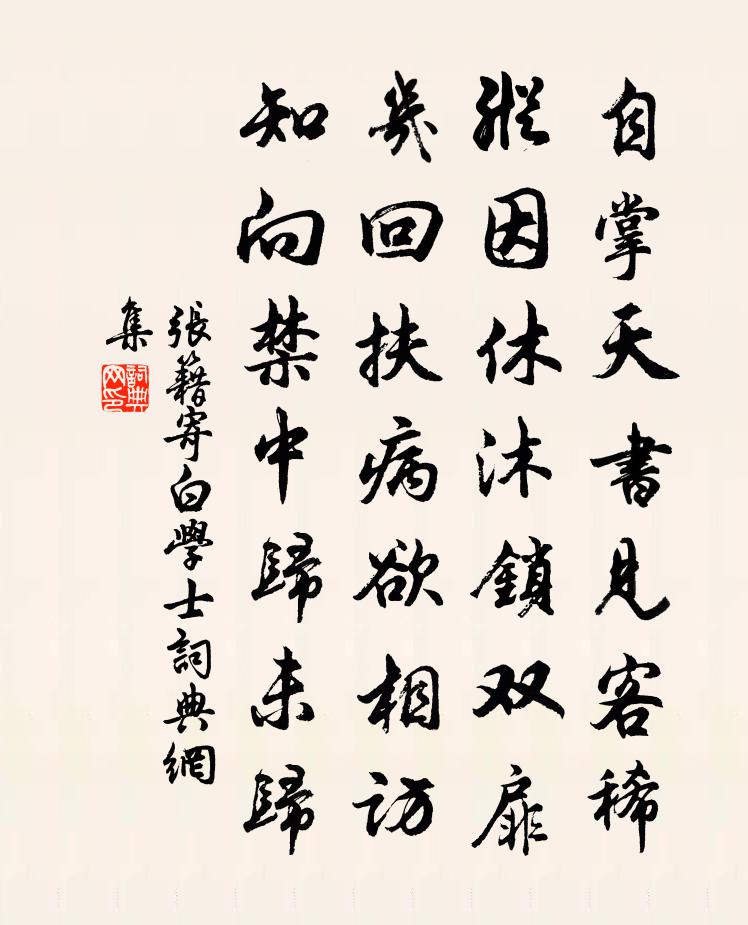 自掌天書見客稀
縱因休沐鎖双扉
幾回扶病欲相訪
知向禁中歸未歸
張籍寄白學士詞典網
集
詞典
网印